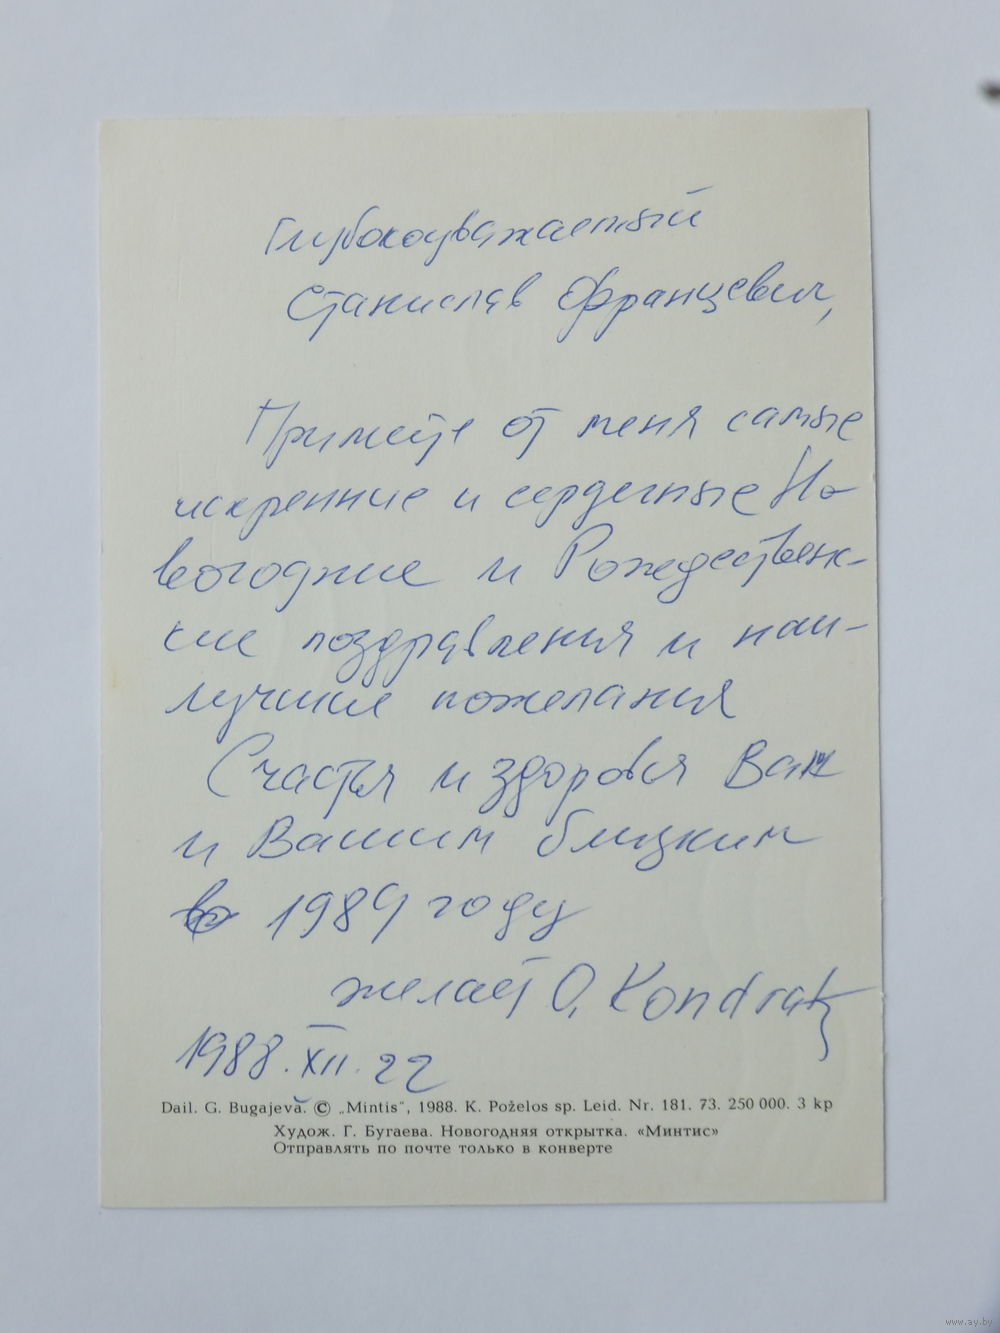 Глубокоуважаемый
Станислав Францевич,
Примите от меня самые
искренние и сердечные Но-
вогодние и Рождественс-
кие поздравления и наи-
лучшие пожелания
Счастья и здоровья Вам
и Вашим близким
в 1989 году
желает O. Kondrat
1988.XII.22
Dail. G. Bugajeva. © „Mintis“, 1988. K. Poželos sp. Leid. Nr. 181. 73. 250 000. 3 kp
Худож. Г. Бугаева. Новогодняя открытка. «Минтис»
Отправлять по почте только в конверте
www.ay.by